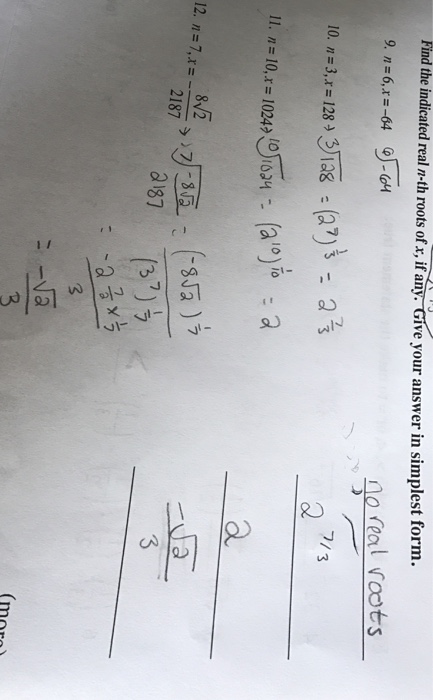 Find the indicated real n-th roots of x, if any. Give your answer in simplest form.
9. n = 6, x = -64 ⁶√-64
no real roots
10. n = 3, x = 128 → ³√128 = (2⁷)^(1/3) = 2^(7/3)
2^(7/3)
11. n = 10, x = 1024 → ¹⁰√1024 = (2¹⁰)^(1/10) = 2
2
12. n = 7, x = - 8√2/2187 → ⁷√(-8√2/2187) = (-8√2)^(1/7)/(3⁷)^(1/7)
= -2^(7/2 × 1/7)/3
= -√2/3
-√2/3
(more)